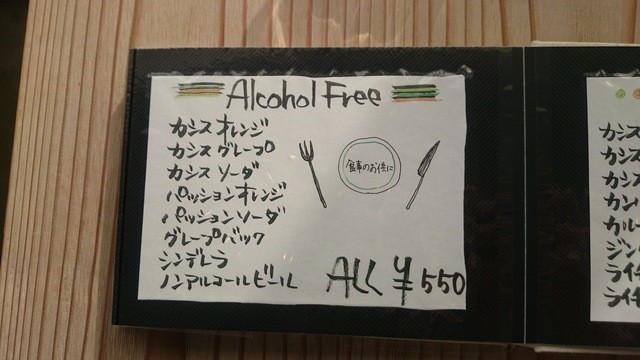 Alcohol Free
カシスオレンジ
カシスグレープ
カシスソーダ
パッションオレンジ
パッションソーダ
グレープバック
シンデレラ
ノンアルコールビール
食事のお供に
ALL ¥550
カシス
カシス
カシス
カン
カル
ジン
ライ
ライ